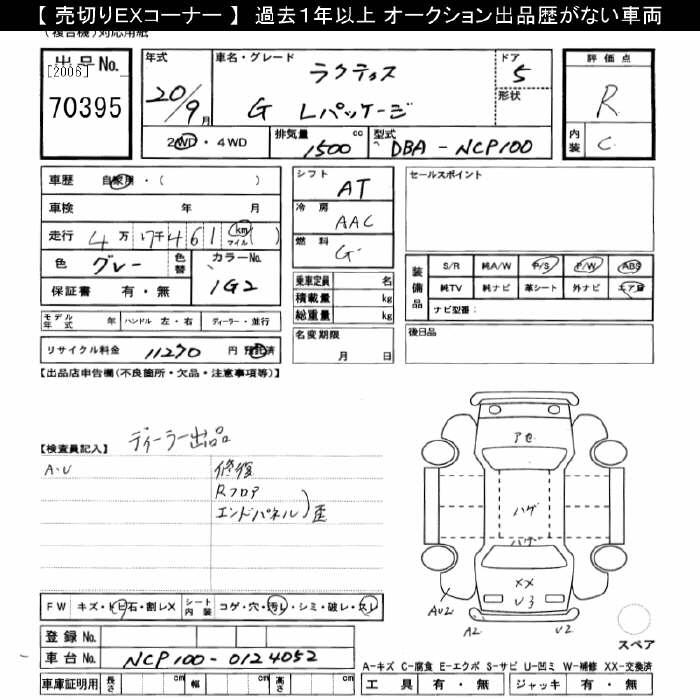 【 売切りEXコーナー 】 過去１年以上 オークション出品歴がない車両
(複合機)対応用紙
出品No.
[2006]
70395
年式
20/9月
車名・グレード
ラクティス
G Lパッケージ
ドア
5
形状
評価点
R
内装
C
2WD・4WD
排気量
1500
cc
型式
DBA-NCP100
車歴 自家用・( )
車検 年 月
走行 4万 7千461 km マイル ( )
色 グレー
色替
カラーNo.
1G2
保証書 有・無
モデル年式 年 ハンドル 左・右 ディーラー・並行
リサイクル料金 11270 円 預託済
シフト AT
冷房 AAC
燃料 G
乗車定員 名
積載量 kg
総重量 kg
名変期限
月 日
セールスポイント
装備品
S/R 純A/W P/S P/W ABS
純TV 純ナビ 革シート 外ナビ エアB
ナビ型番:
後日品
【出品店申告欄(不良箇所・欠品・注意事項等)】
ディーラー出品
【検査員記入】
A・U
修復
Rフロア
エンドパネル)歪
アセ
ハゲ
ハゲ
XX
U3
AU2
A2
U2
スペア
FW キズ・トビ石・割レX
シート内装 コゲ・穴・汚レ・シミ・破レ・スレ
登録No.
車台No. NCP100-0124052
車庫証明用 長さ cm 幅 cm 高さ cm
A-キズ C-腐食 E-エクボ S-サビ U-凹ミ W-補修 XX-交換済
工具 有・無 ジャッキ 有・無